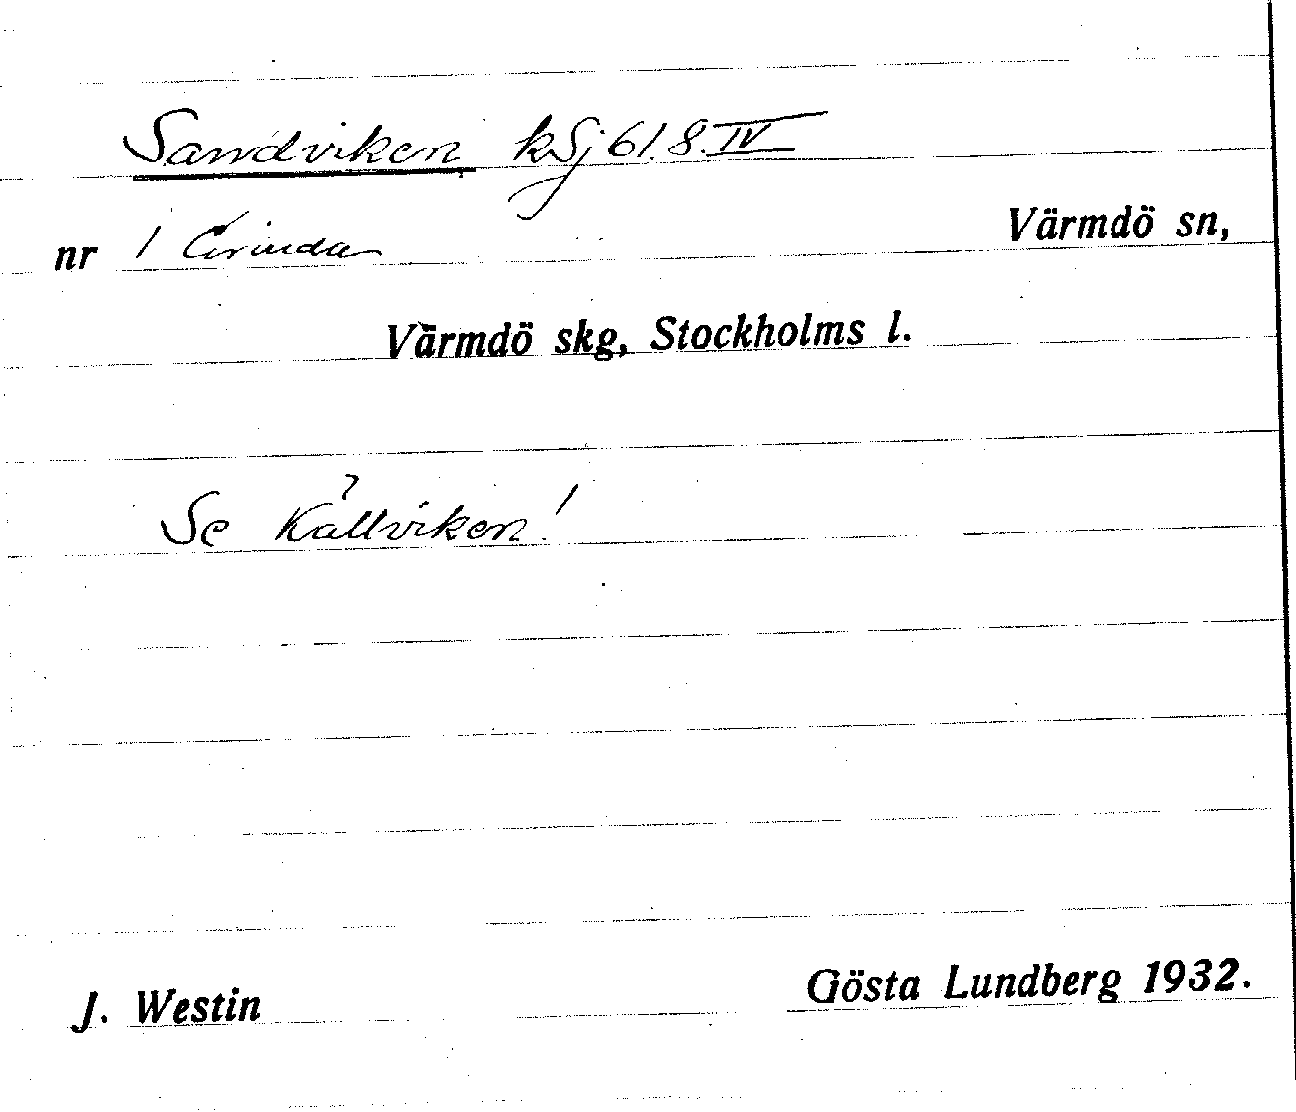 Sandviken kSj 61.8.IV
nr 1 Grinda Värmdö sn,
Värmdö skg, Stockholms l.
Se Källviken!
J. Westin Gösta Lundberg 1932.